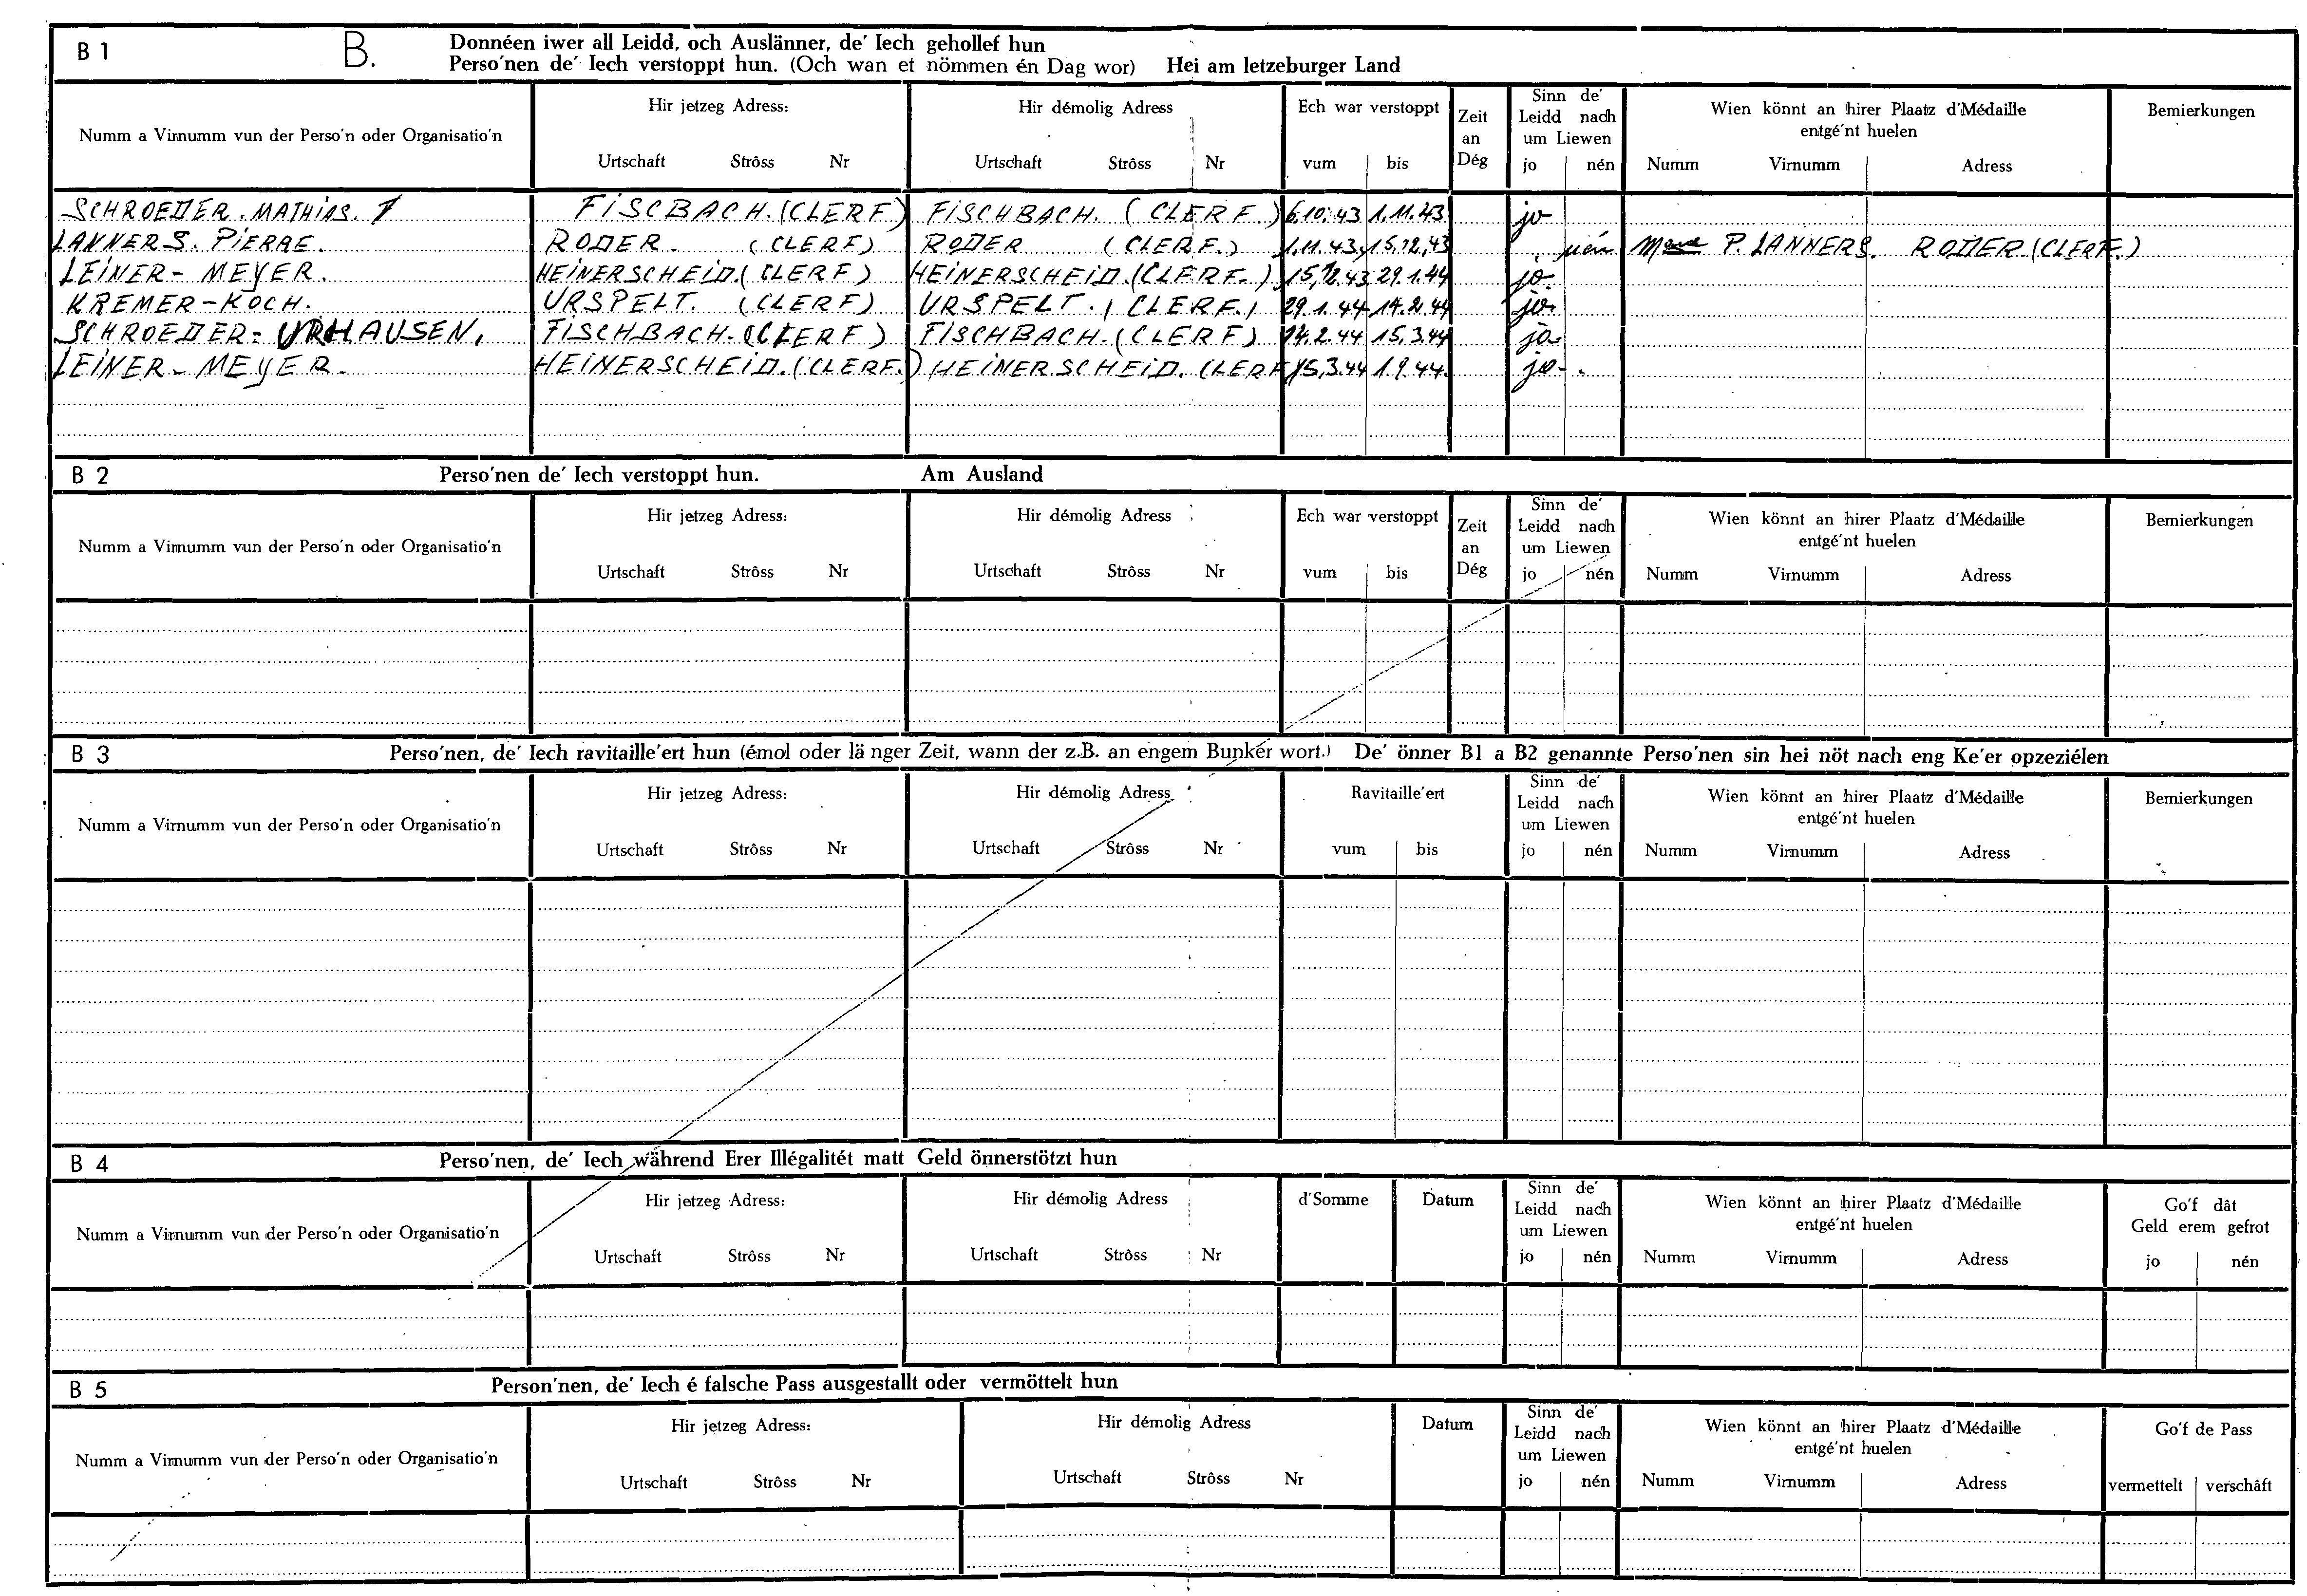 B 1 B. Donnéen iwer all Leidd, och Auslänner, de' Iech gehollef hun
Perso'nen de' Iech verstoppt hun. (Och wan et nömmen én Dag wor) Hei am letzeburger Land
Numm a Virnumm vun der Perso'n oder Organisatio'n
Hir jetzeg Adress:
Urtschaft Strôss Nr
Hir démolig Adress
Urtschaft Strôss Nr
Ech war verstoppt
vum bis
Zeit
an
Dég
Sinn de'
Leidd nach
um Liewen
jo nén
Wien könnt an hirer Plaatz d'Médaille
entgé'nt huelen
Numm Virnumm Adress
Bemierkungen
SCHROEDER. MATHIAS. FISCBACH. (CLERF) FISCHBACH. (CLERF) 6.10.43 1.11.43 jo
LANNERS. PIERRE. RODER. (CLERF) RODER (CLERF.) 1.11.43 15.12.43 nén P. LANNERS. RODER (CLERF.)
LEINER-MEYER. HEINERSCHEID. (CLERF) HEINERSCHEID. (CLERF.) 15.12.43 29.1.44 jo.
KREMER-KOCH. URSPELT. (CLERF) URSPELT. (CLERF.) 29.1.44 14.2.44 jo.
SCHROEDER-URHAUSEN, FISCHBACH. (CLERF) FISCHBACH. (CLERF) 14.2.44 15.3.44 jo
LEINER-MEYER. HEINERSCHEID. (CLERF.) HEINERSCHEID. (CLERF) 15.3.44 1.9.44. jo.
B 2 Perso'nen de' Iech verstoppt hun. Am Ausland
Numm a Virnumm vun der Perso'n oder Organisatio'n
Hir jetzeg Adress:
Urtschaft Strôss Nr
Hir démolig Adress
Urtschaft Strôss Nr
Ech war verstoppt
vum bis
Zeit
an
Dég
Sinn de'
Leidd nach
um Liewen
jo nén
Wien könnt an hirer Plaatz d'Médaille
entgé'nt huelen
Numm Virnumm Adress
Bemierkungen
B 3 Perso'nen, de' Iech ravitaille'ert hun (émol oder länger Zeit, wann der z.B. an engem Bunker wort.) De' önner B1 a B2 genannte Perso'nen sin hei nöt nach eng Ke'er opzeziélen
Numm a Virnumm vun der Perso'n oder Organisatio'n
Hir jetzeg Adress:
Urtschaft Strôss Nr
Hir démolig Adress
Urtschaft Strôss Nr
Ravitaille'ert
vum bis
Sinn de'
Leidd nach
um Liewen
jo nén
Wien könnt an hirer Plaatz d'Médaille
entgé'nt huelen
Numm Virnumm Adress
Bemierkungen
B 4 Perso'nen, de' Iech während Erer Illégalitét matt Geld önnerstötzt hun
Numm a Virnumm vun der Perso'n oder Organisatio'n
Hir jetzeg Adress:
Urtschaft Strôss Nr
Hir démolig Adress
Urtschaft Strôss Nr
d'Somme
Datum
Sinn de'
Leidd nach
um Liewen
jo nén
Wien könnt an hirer Plaatz d'Médaille
entgé'nt huelen
Numm Virnumm Adress
Go'f dât
Geld erem gefrot
jo nén
B 5 Person'nen, de' Iech é falsche Pass ausgestallt oder vermöttelt hun
Numm a Virnumm vun der Perso'n oder Organisatio'n
Hir jetzeg Adress:
Urtschaft Strôss Nr
Hir démolig Adress
Urtschaft Strôss Nr
Datum
Sinn de'
Leidd nach
um Liewen
jo nén
Wien könnt an hirer Plaatz d'Médaille
entgé'nt huelen
Numm Virnumm Adress
Go'f de Pass
vermettelt verschâft